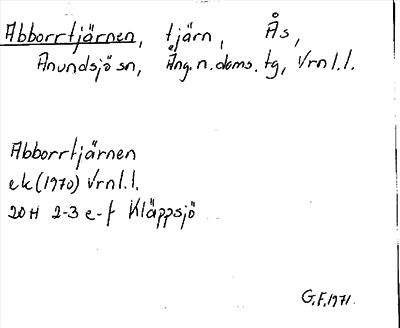 Abborrtjärnen, tjärn, Ås,
Anundsjö sn, Ång.n.doms.tg, Vrnl.l.
Abborrtjärnen
ek (1970) Vrnl.l.
20H 2-3 e-f Kläppsjö
G.F. 1971.